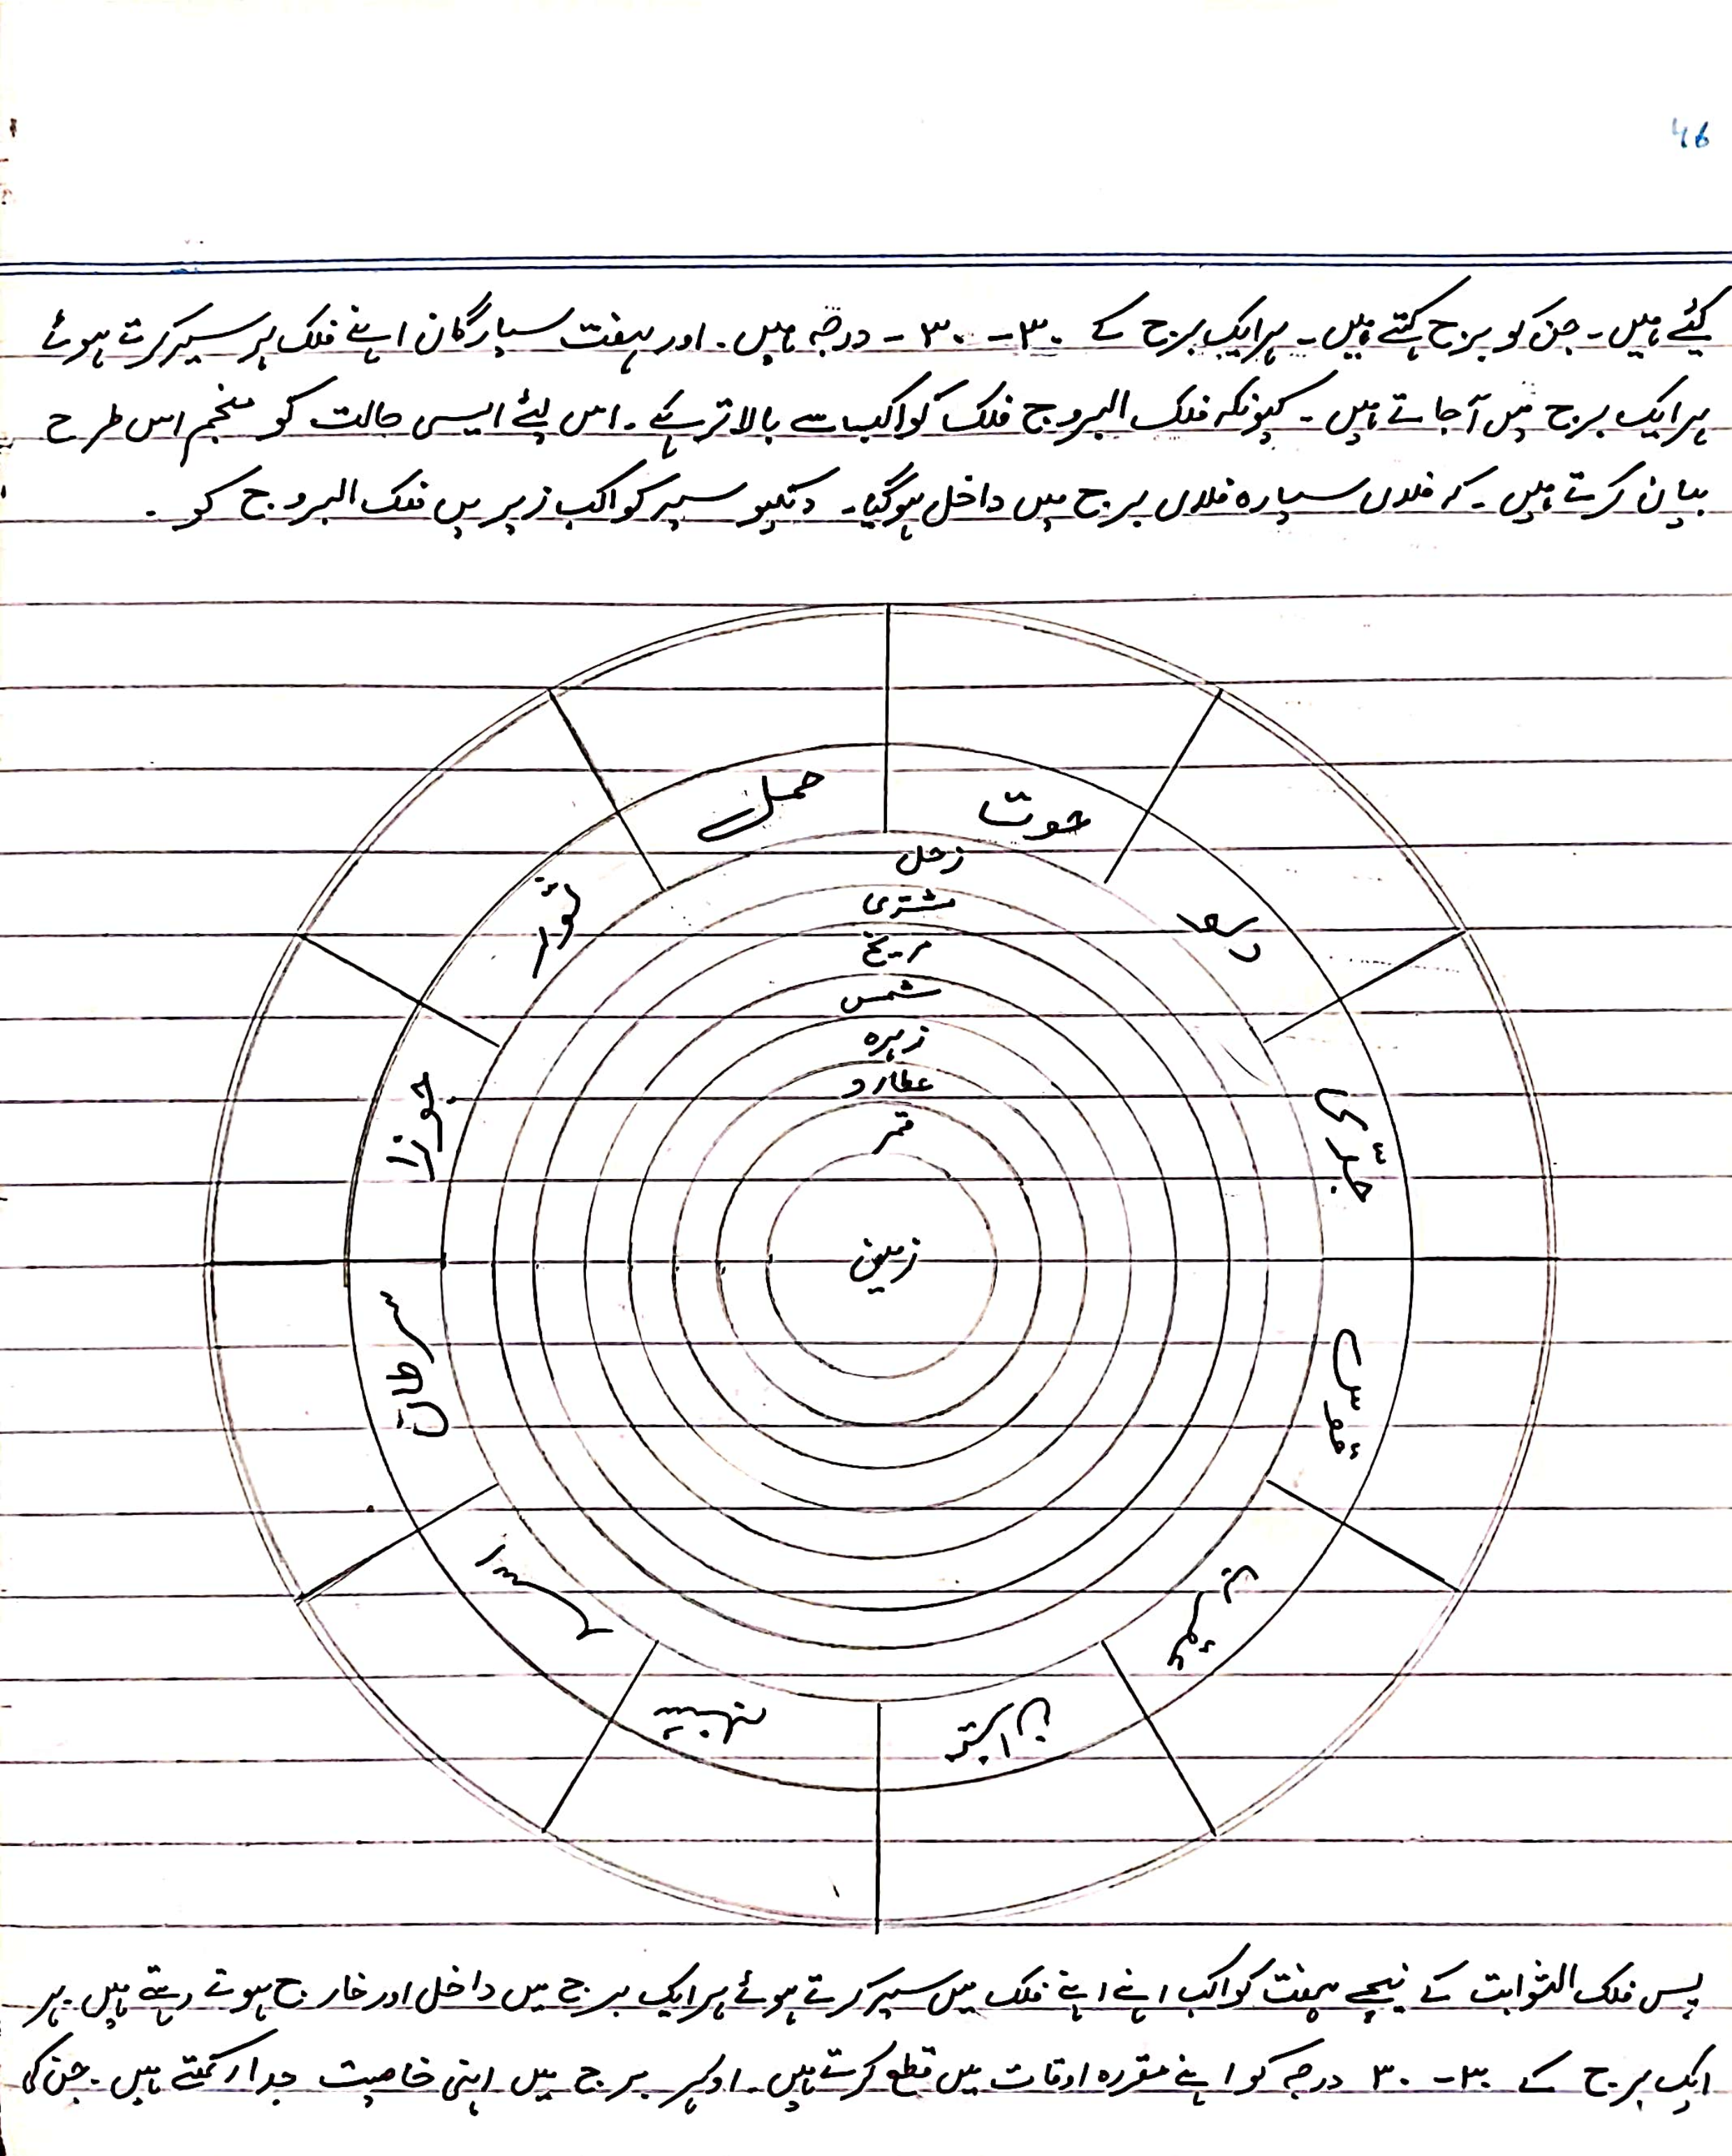 46
کئے ہیں۔ جن کو برج کہتے ہیں۔ ہر ایک برج کے ۳۰ - ۳۰ - درجہ ہیں۔ اور ہفت سیارگان اپنے فلک پر سیر کرتے ہوئے
ہر ایک برج میں آجاتے ہیں۔ کیونکہ فلک البروج فلک کواکب سے بالا تر ہے۔ اس لئے ایسی حالت کو منجم اس طرح
بیان کرتے ہیں۔ کہ فلاں سیارہ فلاں برج میں داخل ہوگیا۔ دیکھو سیر کواکب زیر میں فلک البروج کو۔
حمل
حوت
ثور
دلو
جوزا
جدّی
سرطان
قوس
اسد
عقرب
سنبلہ
میزان
زحل
مشتری
مریخ
شمس
زہرہ
عطارد
قمر
زمین
پس فلک الثوابت کے نیچے ہفت کواکب اپنے اپنے فلک میں سیر کرتے ہوئے ہر ایک برج میں داخل اور خارج ہوتے رہتے ہیں۔ ہر
ایک برج کے ۳۰ - ۳۰ درجہ کو اپنے مقررہ اوقات میں قطع کرتے ہیں۔ اور ہر برج میں اپنی خاصیت جدا رکھتے ہیں۔ جن کی